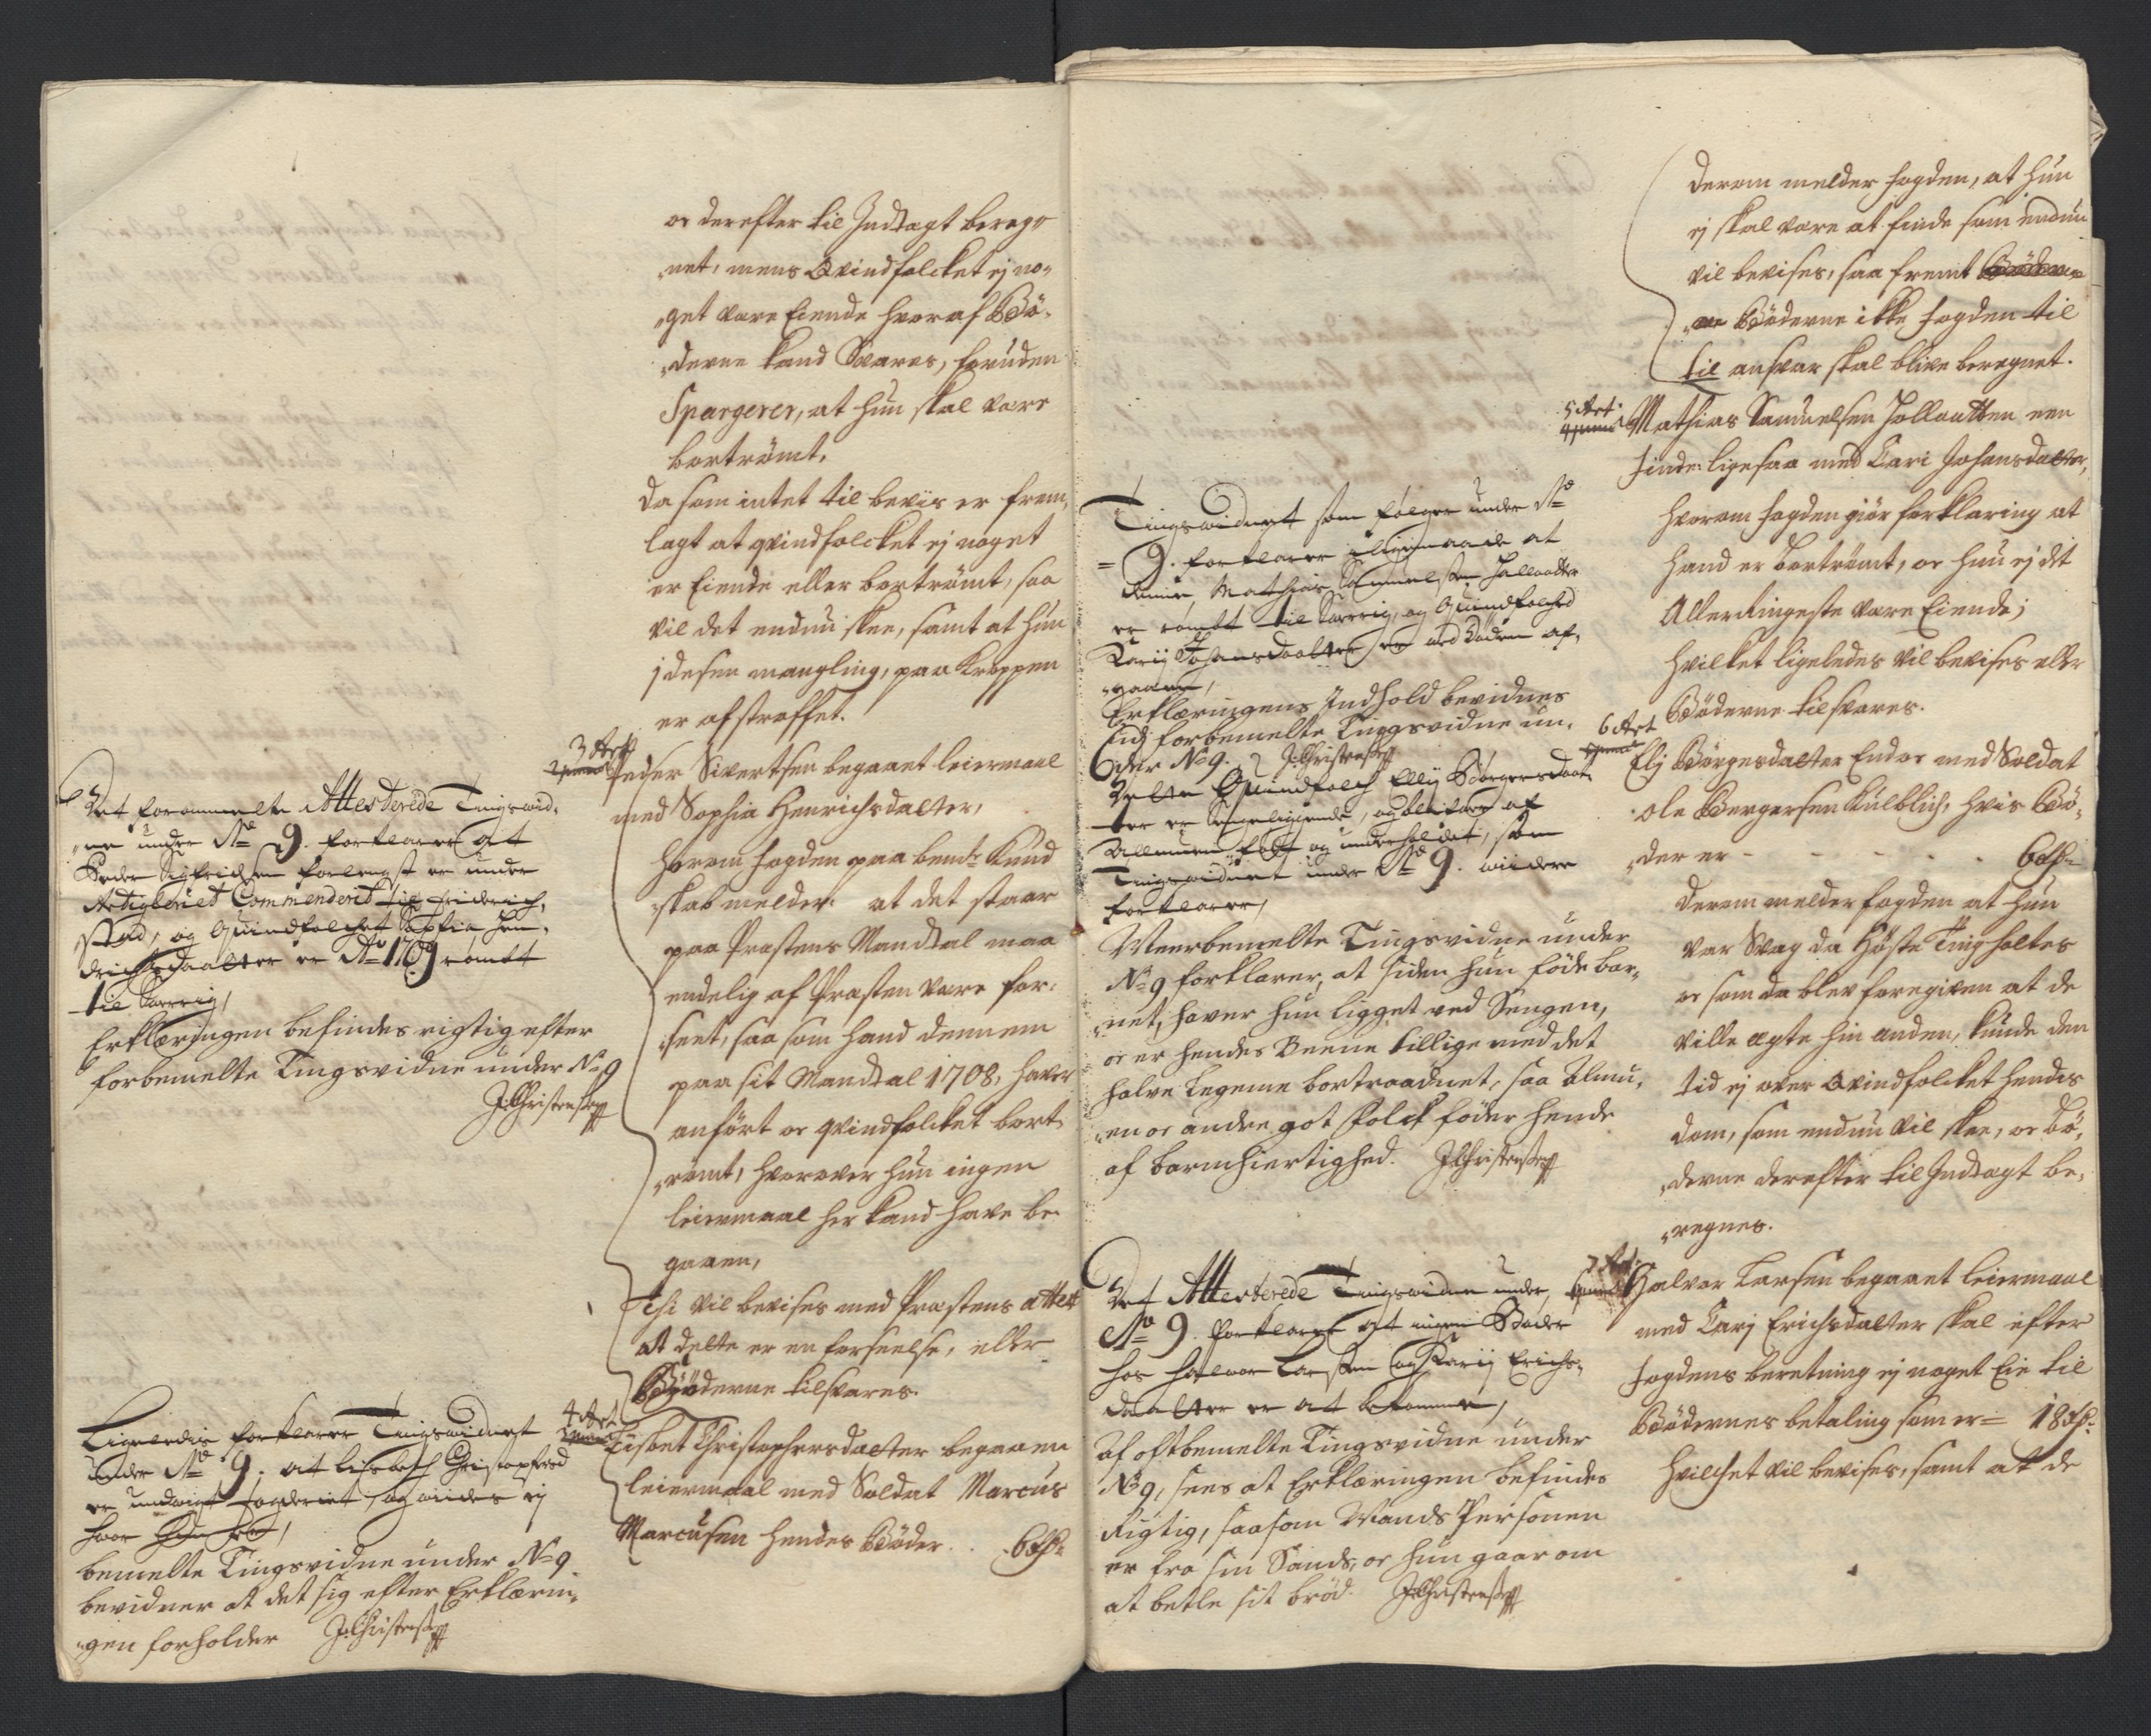 or derefter til Indtægt bereg-
net, mens Qvindfolcket ej no-
get være Eiende hvoraf Bö-
derne kand Svares, foruden
Spargerer, at hun skal være
bortrömt,
da som intet til beviis er frem-
lagt at qvindfolcket ej noget
er Eiende eller bortrömt, saa
vil det endnu skee, samt at hun
j desen mangling, paa kroppen
er afstraffet.
3 Art
Peder Sivertsen begaaet leiermaal
med Sophia Henrichsdatter,
horom fogden paa bemt: Kund
skab melder: at det staar
paa Præstens Mandtal maa
endelig af Præsten være for-
seet, saa som hand dennem
paa sit Mandtal 1708, haver
anfört or qvindfolcket bort-
römt, hvorover hun ingen
leiermaal her kand have be-
gaaen,
vil bevises med Præstens attest
at dette er en forseelse, eller
Böderne tilsvares.
4 Art
Lisbet Christophersdatter begaaen
leiermaal med Soldat Marcus
Marcusen hendes Böder . . 6
Det forommelte Attesterede Tingswid-
ne under No 9. forklarer at
Peder Sigfridsen forlengst er under
Artigleriet Commenderet til Friderich-
stad, og Quindfolchet Sophia Hen-
drichsdaatter er Ao 1709 römbt
til Sverrig,
Erklæringen befindes rigtig efter
forbemelte Tingsvidne under No 9
JChristensen
Ligeledis forklarer Tingswidnet
under No 9. at Lisebeth Christopfersd
er undvigt fogderiet og viides ej
hvor hun er,
bemelte Tingsvidne under No 9
bevidner at det sig efter Erklærin-
gen forholder JChristensen
Tingswidnet som følger under No
9. forklarer iligemaade at
Mathias Samuelsen Jallaatter
er römbt til Sverrig, og Quindfolched
Karij Johansdaatter er ved Döden af-
gaaen,
Erklæringens Indhold bevidnes
udj forbemelte Tingsvidne un-
der No 9. JChristensen
Quindfolch Ellij Börgersdaat-
ter er Sengeliggende, og bliver af
Allmuen født og underholdet, som
Tingswidnet under No 9. viidere
forklarer,
Meerbemelte Tingsvidne under
No 9 forklarer, at siden hunföde bar-
net, haver hun ligget ved Sengen,
or er hendes Beene tillige med det
halve Legeme bortraadnet, saa Almu-
en or andre got Folck föder hende
af barmhiertighed. JChristensen
Det Attesterede Tingswidne under
No 9. forklarer at ingen Böder
hos Halvor Larsen og Karij Erichs-
daatter er at bekomme,
Af oftbemelte Tingsvidne under
No 9, sees at Erklæringen befindes
Rigtig, saasom Mands Personen
er fra sin Sands, or hun gaar om
at betle sit bröd. JChristensen
derom melder fogden, at hun
ej skal være at finde som endnu
vil bevises, saa fremt
Böderne ikke fogden til
til ansvar skal blive beregnet.
5 Art
Mathias Samuelsen Jollaatten een
finde: ligesaa med Cari Johansdatter,
hvorom fogden giör forklaring at
hand er bortrömt, or hun ej det
Allerringeste være Eiende;
hvilket ligeledes vil bevises eller
Böderne tilsvares.
6 Art
Elj Börgesdatter Endor med Soldat
ole Bergersen Külblich, hvis Bö-
der er - - - - - 6
derom melder fogden at hun
var Svag da Höste Ting holtes
or som da blev foregiven at de
ville ægte hin anden, kunde den
tid ej over Qvindfolcket hendis
dom, som endnu vil skee, or bö-
derne derefter til Indtægt be-
regnes.
7 Art
Halvor Larsen begaaet leiermaal
med Carj Erichsdatter skal efter
fogdens beretning ej noget Eie til
Bödernes betaling som er = 18
hvilchet vil bevises, samt at de